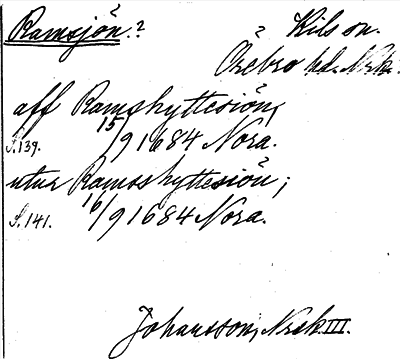 Ramsjön? Kils sn.
Örebro hd. Nrk.
aff Ramshyttesiön,
S. 139. 15/9 1684 Nora.
utur Ramsshyttesiön;
S. 141. 16/9 1684 Nora.
Johansson, Nrsk III.